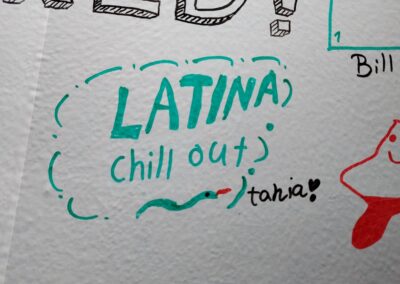 1
Bill
LATINA
chill out
tania!